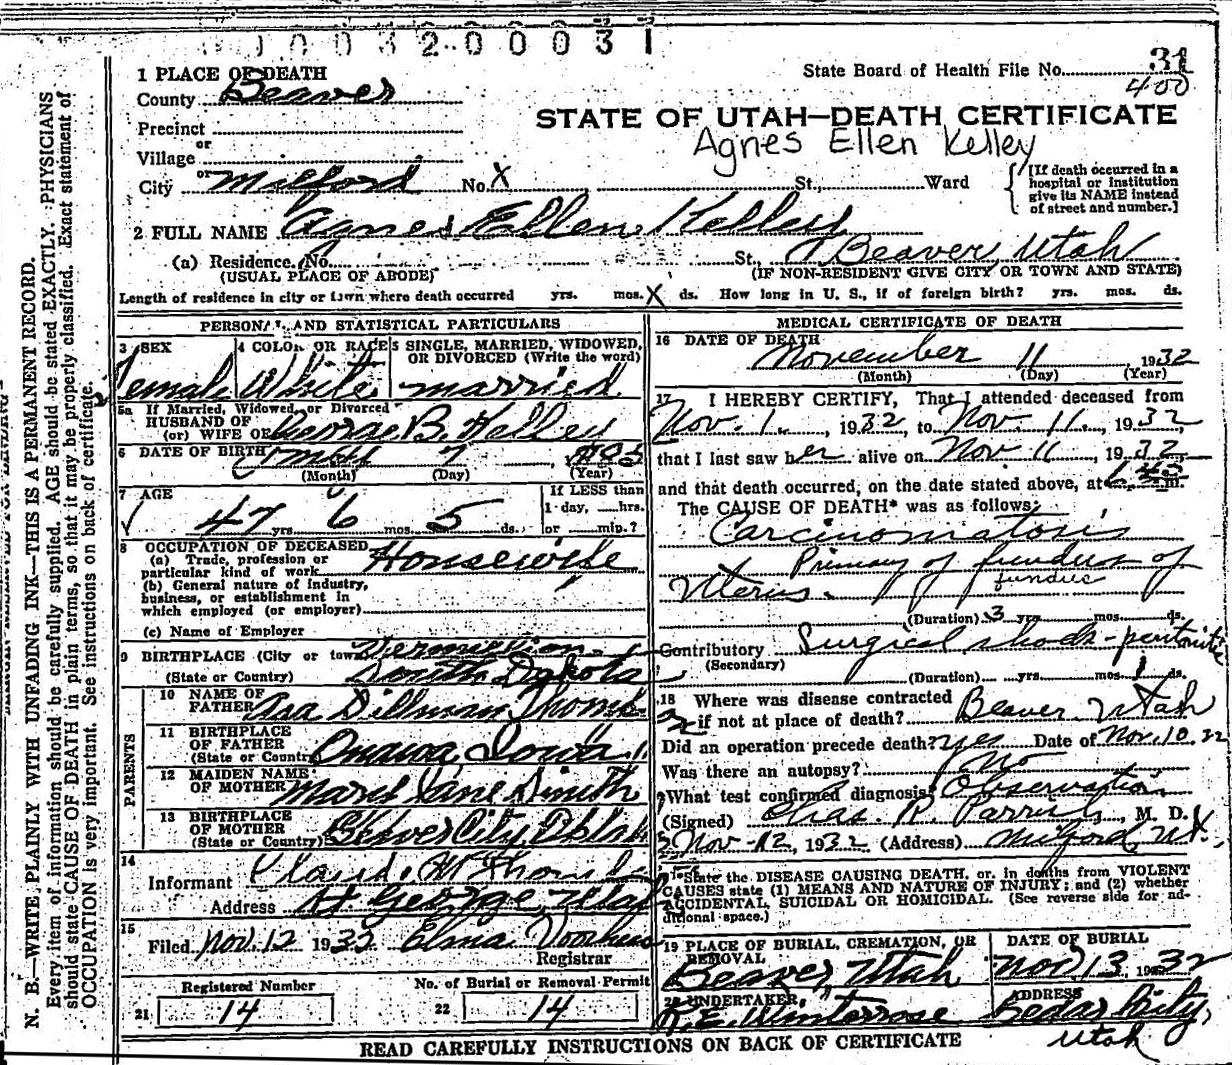 1 0 0 3 2 0 0 0 3 1
1 PLACE OF DEATH
State Board of Health File No. 31
400
County Beaver
STATE OF UTAH—DEATH CERTIFICATE
Precinct
Agnes Ellen Kelley
or
Village
or
City Milford No. X St., Ward
[If death occurred in a hospital or institution give its NAME instead of street and number.]
2 FULL NAME Agnes Ellen Kelley
(a) Residence. No. St., Beaver, Utah
(USUAL PLACE OF ABODE) (IF NON-RESIDENT GIVE CITY OR TOWN AND STATE)
Length of residence in city or town where death occurred yrs. mos. X ds. How long in U. S., if of foreign birth? yrs. mos. ds.
PERSONAL AND STATISTICAL PARTICULARS
3 SEX
4 COLOR OR RACE
5 SINGLE, MARRIED, WIDOWED, OR DIVORCED (Write the word)
Female White married
5a If Married, Widowed, or Divorced
HUSBAND OF
(or) WIFE OF George B. Kelley
6 DATE OF BIRTH 7
(Month) (Day) (Year)
7 AGE
If LESS than
1 day, hrs.
or min.?
47 yrs 6 mos. 5 ds.
8 OCCUPATION OF DECEASED
(a) Trade, profession or
particular kind of work Housewife
(b) General nature of industry,
business, or establishment in
which employed (or employer)
(c) Name of Employer
9 BIRTHPLACE (City or town) Vermillion
(State or Country) South Dakota
PARENTS
10 NAME OF
FATHER Asa Dillman
11 BIRTHPLACE
OF FATHER
(State or Country) Onawa, Iowa
12 MAIDEN NAME
OF MOTHER Jane Smith
13 BIRTHPLACE
OF MOTHER
(State or Country)
14
Informant
Address St George, Utah
15
Filed Nov. 12 1932 Elma
Registrar
Registered Number
21 14
No. of Burial or Removal Permit
22 14
MEDICAL CERTIFICATE OF DEATH
16 DATE OF DEATH
November 11 1932
(Month) (Day) (Year)
17 I HEREBY CERTIFY, That I attended deceased from
Nov. 1, 1932, to Nov. 11, 1932,
that I last saw her alive on Nov 11, 1932,
and that death occurred, on the date stated above, at m.
The CAUSE OF DEATH* was as follows:
Carcinomatosis
Primary of fundus of
fundus
Uterus.
(Duration) 3 yrs mos. ds.
Contributory Surgical shock-peritonitis
(Secondary)
(Duration) yrs. mos. 1 ds.
18 Where was disease contracted
if not at place of death? Beaver, Utah
Did an operation precede death? yes Date of Nov. 10. 32
Was there an autopsy? No
What test confirmed diagnosis? Observation
(Signed) Chas. R. Parrish, M. D.
Nov-12, 1932 (Address) Milford, Ut.
*State the DISEASE CAUSING DEATH, or in deaths from VIOLENT
CAUSES state (1) MEANS AND NATURE OF INJURY; and (2) whether
ACCIDENTAL, SUICIDAL OR HOMICIDAL. (See reverse side for ad-
ditional space.)
19 PLACE OF BURIAL, CREMATION, OR
REMOVAL
Beaver, Utah
DATE OF BURIAL
Nov 13, 1932
20 UNDERTAKER
R. E. Winterrose
ADDRESS
Cedar City,
Utah
READ CAREFULLY INSTRUCTIONS ON BACK OF CERTIFICATE
N. B.—WRITE PLAINLY WITH UNFADING INK—THIS IS A PERMANENT RECORD.
Every item of information should be carefully supplied. AGE should be stated EXACTLY. PHYSICIANS
should state CAUSE OF DEATH in plain terms, so that it may be properly classified. Exact statement of
OCCUPATION is very important. See instructions on back of certificate.